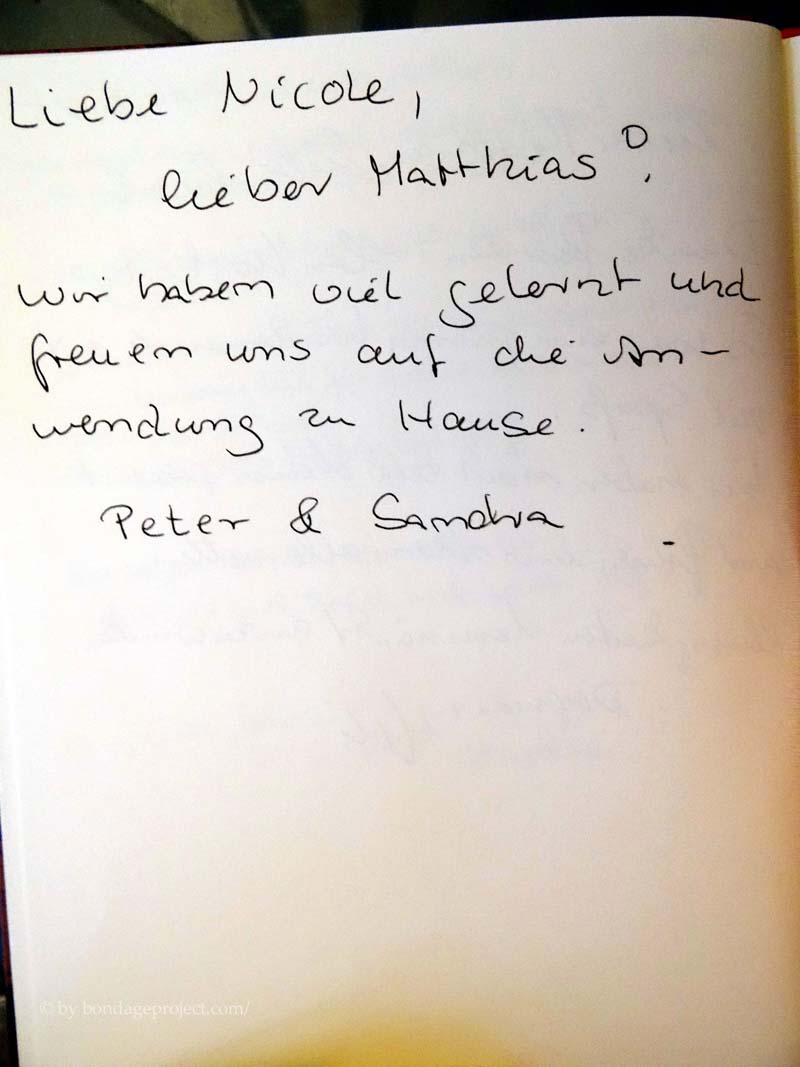 Liebe Nicole,
lieber Matthias,
wir haben viel gelernt und
freuen uns auf die An-
wendung zu Hause.
Peter & Sandra
© by bondageproject.com/